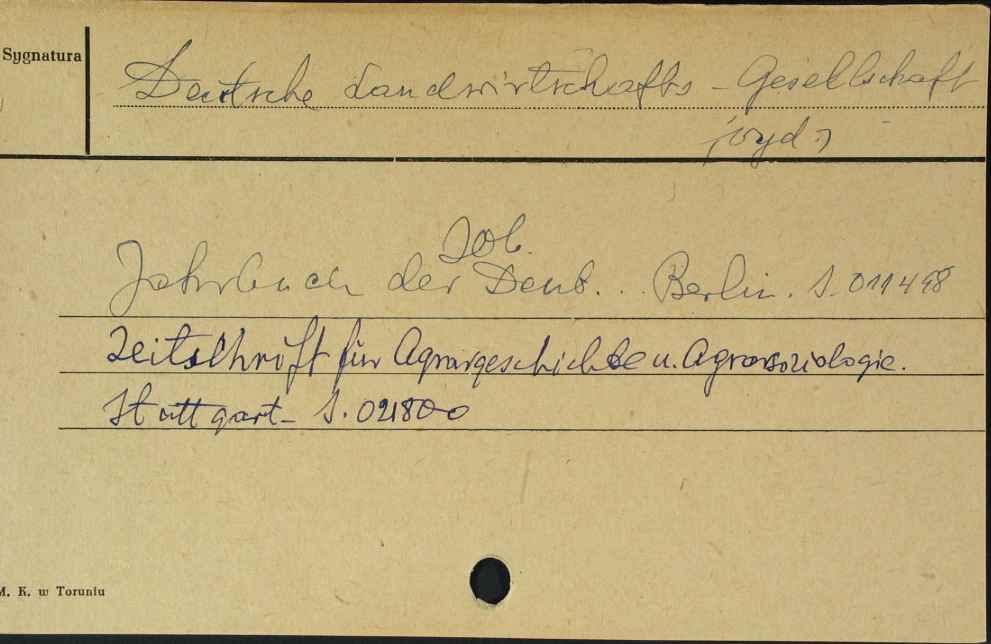 Sygnatura
Deutsche Landwirtschafts - Gesellschaft
(wyd.)
Job.
Jahrbuch der Deut. .. Berlin. S. 011498
Zeitschrift für Agrargeschichte u. Agrarsoziologie.
Stuttgart - S. 021800
M. K. w Toruniu